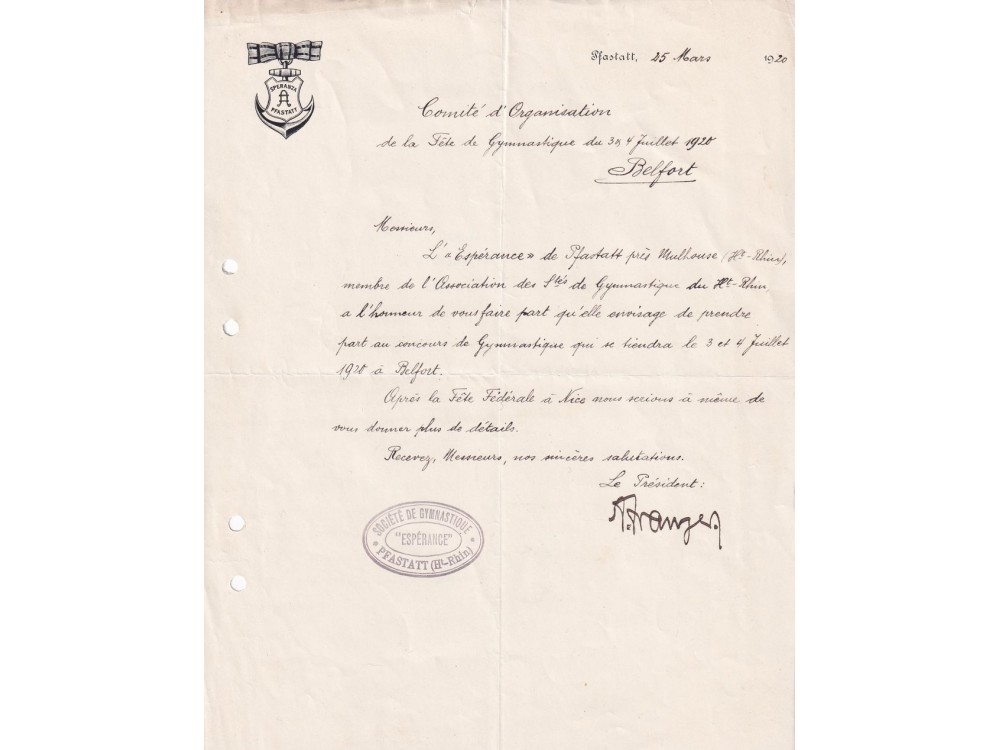 SPERANZA
A
PFASTATT
Pfastatt, 25 Mars 1920
Comité d'Organisation
de la Fête de Gymnastique du 3 & 4 Juillet 1920
Belfort
Messieurs,
L'«Espérance» de Pfastatt près Mulhouse (Ht-Rhin),
membre de l'Association des Stés de Gymnastique du Ht-Rhin,
a l'honneur de vous faire part qu'elle envisage de prendre
part au concours de Gymnastique qui se tiendra le 3 et 4 Juillet
1920 à Belfort.
Après la Fête Fédérale à Nice nous serions à même de
vous donner plus de détails.
Recevez, Messieurs, nos sincères salutations.
Le Président:
SOCIÉTÉ DE GYMNASTIQUE
"ESPÉRANCE"
PFASTATT (Ht-Rhin)